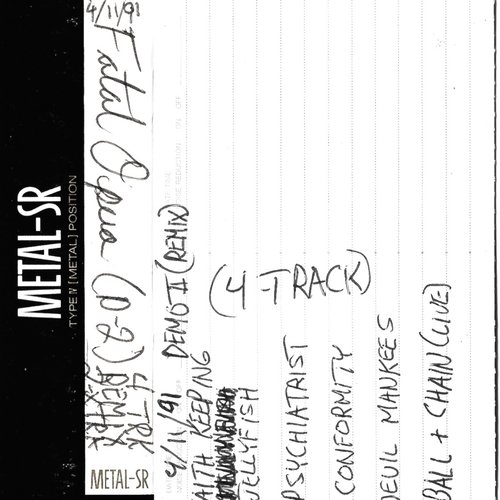 METAL-SR
TYPE IV [METAL] POSITION
4/11/91
Fatal Opera (D-2)
4 TRK
REMIX
METAL-SR
4/11/91 DEMO II (REMIX)
(4-TRACK)
AITH KEEPING
VELLYFISH
PSYCHIATRIST
CONFORMITY
DEVIL MANKEES
BALL + CHAIN (LIVE)